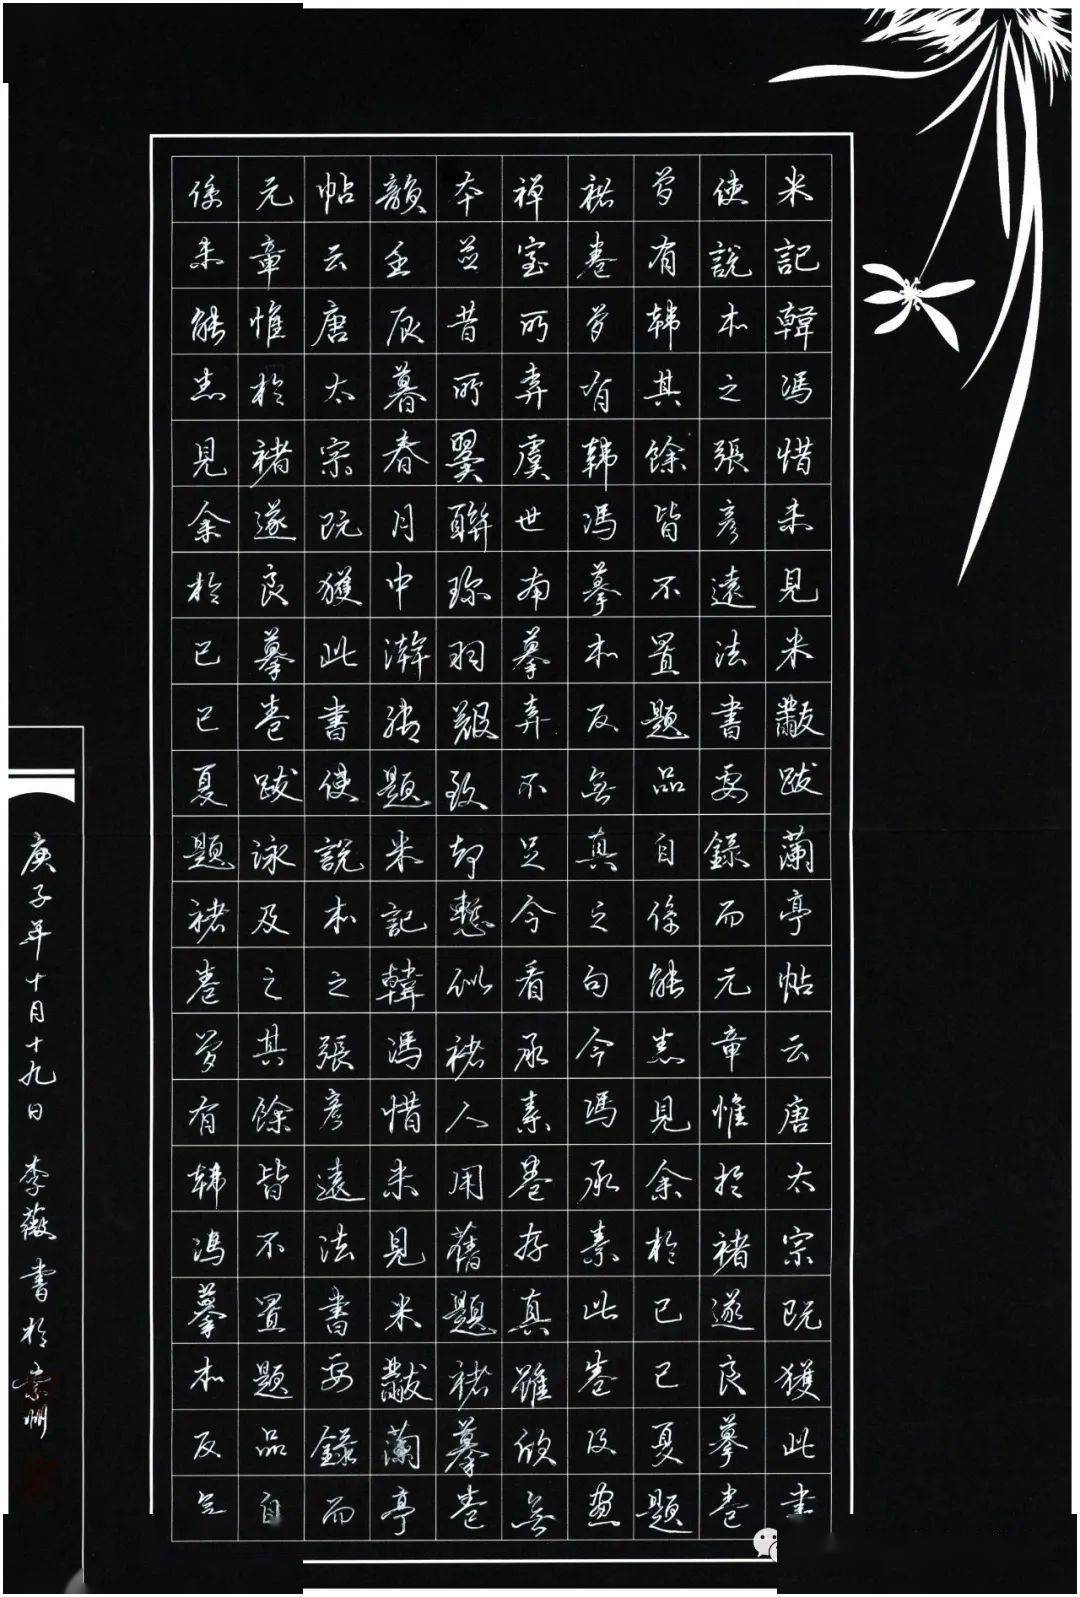 米記韓馮惜未見米黻跋蘭亭帖云唐太宗既獲此書
使說本之張彥遠法書要錄而元章惟於褚遂良摹卷
曾有韩其餘皆不置題品自係能悉見余於已已夏題
褚卷曾有韩馮摹本反無真之句今馮承素此卷及
禪室所弆虞世南摹弆不足今看承素卷存真雖欣無
本並昔所翼聯珎羽艱致却慙似褚人用舊題褚摹卷
韻壬辰暮春月中澣御題米記韓馮惜未見米黻蘭亭
帖云唐太宗既獲此書使說本之張彥遠法書要錄而
元章惟於褚遂良摹卷跋泳及之其餘皆不置題品自
係未能悉見余於已已夏題褚卷曾有韩馮摹本反無
庚子年十月十九日 李薇書於常州